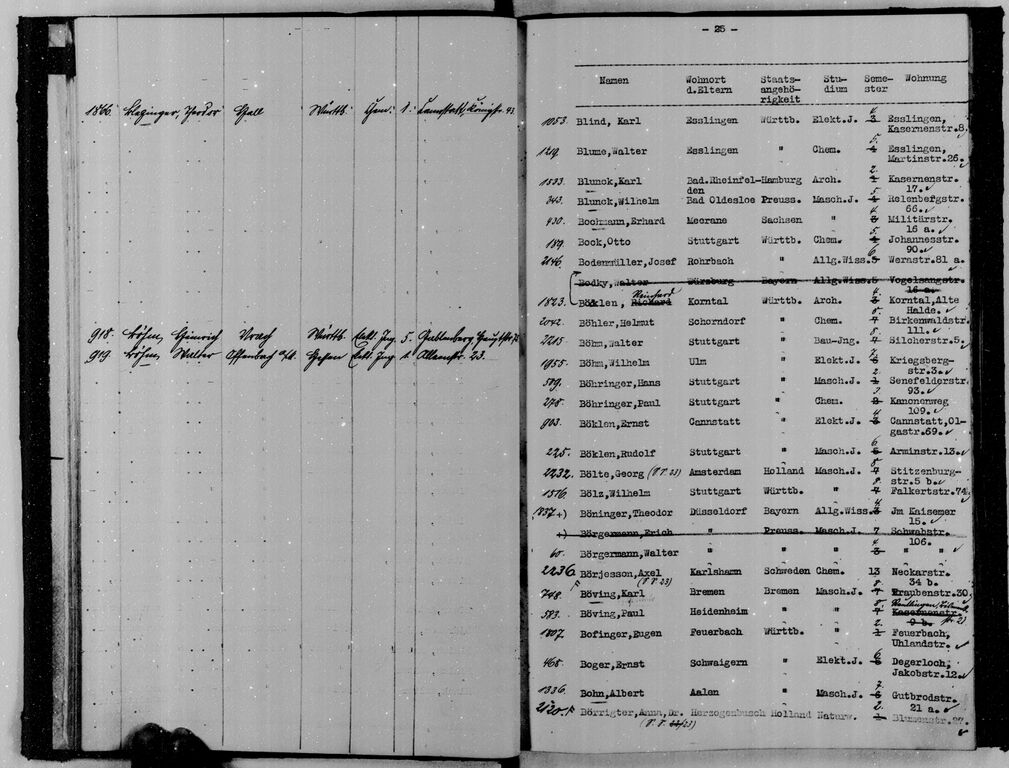 1866. Theodor Hall Württb. Chem. 1. Cannstatt, Königstr. 43
918. Böhm, Heinrich Urach Württb. Elekt. Ing 5. Gablenberg Hauptstr.
919. Böhm, Walter Offenbach a/M. Hessen Elekt. Ing 1. 23.
- 25 -
Namen Wohnort Staats- Stu- Seme- Wohnung
d.Eltern angehö- dium ster
rigkeit
4.
1053. Blind, Karl Esslingen Württb. Elekt.J. 3 Esslingen,
Kasernenstr.8.
5.
1219. Blume,Walter Esslingen " Chem. 4 Esslingen,
Martinstr.26.
2.
1533. Blunck,Karl Bad.Rheinfel- Hamburg Arch. 1 Kasernenstr.
den 5. 17.
343. Blunck,Wilhelm Bad Oldesloe Preuss. Masch.J. 4 Relenbergstr.
4. 66.
930. Bochmann,Erhard Meerane Sachsen " 3 Militärstr.
5. 16 a.
189. Bock,Otto Stuttgart Württb. Chem. 4 Johannesstr.
6 90.
2146 Bodenmüller,Josef Rohrbach " Allg.Wiss. 5 Werastr.81 a.
Bodky,Walter Würzburg Bayern Allg.Wiss. 5 Vogelsangstr.
Reinhard 4. 16 a.
1823. Böklen, Richard Korntal Württb. Arch. 3 Korntal,Alte
8. Halde.
2042. Böhler,Helmut Schorndorf " Chem. 7 Birkenwaldstr.
8. 111.
2215. Böhm,Walter Stuttgart " Bau-Jng. 7 Silcherstr.5.
7.
1955. Böhm,Wilhelm Ulm " Elekt.J. 6 Kriegsberg-
2. str.3.
589. Böhringer,Hans Stuttgart " Masch.J. 1 Senefelderstr.
93.
278. Böhringer,Paul Stuttgart " Chem. 2 Kanonenweg
4 109.
903. Böklen,Ernst Cannstatt " Elekt.J. 3 Cannstatt,Ol-
gastr.69.
6
225. Böklen,Rudolf Stuttgart " Masch.J. 5 Arminstr.13.
8
2232. Bölte,Georg Amsterdam Holland Masch.J. 7 Stitzenburg-
8. str.5 b.
1516. Bölz,Wilhelm Stuttgart Württb. " 7 Falkertstr.74.
4.
1837 +) Böninger,Theodor Düsseldorf Bayern Allg.Wiss. 3 Jm Kaisemer
15.
+) Börgermann,Erich " Preuss. Masch.J. 7 Schwabstr.
4. 106.
60. Börgermann,Walter " " " 3 " "
2236. Börjesson,Axel Karlshamn Schweden Chem. 13 Neckarstr.
8. 34 b.
748. Böving,Karl Bremen Bremen Masch.J. 7 Traubenstr.30.
8.
583. Böving,Paul Heidenheim " " 7 Kasernenstr.
2. 9 b.
1807. Bofinger,Eugen Feuerbach Württb. " 1 Feuerbach,
Uhlandstr.
6
468. Boger,Ernst Schwaigern " Elekt.J. 5 Degerloch,
Jakobstr.12.
7.
1336. Bohn,Albert Aalen " Masch.J. 6 Gutbrodstr.
2. 21 a.
2120. Börrigter,Anna,Dr. Herzogenbusch Holland Naturw. 1 Blumenstr.27.